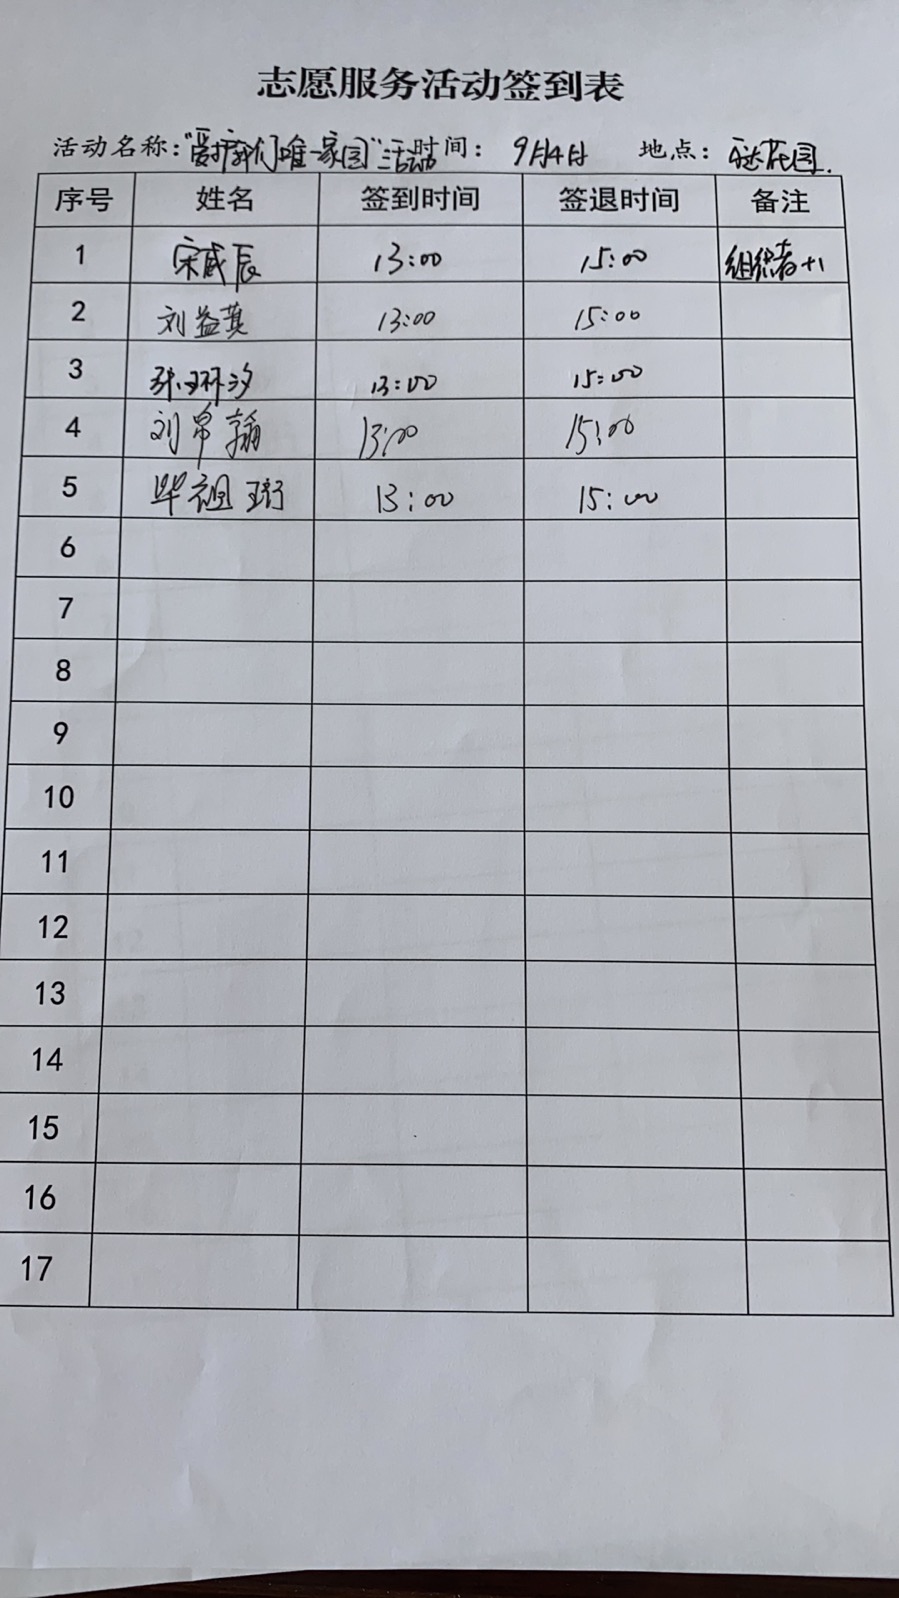 志愿服务活动签到表
活动名称:“爱护我们唯一家园”活动 时间: 9月4日 地点: 花园.
序号 姓名 签到时间 签退时间 备注
1 宋威辰 13:00 15:00 组织者+1
2 刘益萁 13:00 15:00
3 张环汐 13:00 15:00
4 刘帛翰 13:00 15:00
5 毕祖珩 13:00 15:00
6
7
8
9
10
11
12
13
14
15
16
17